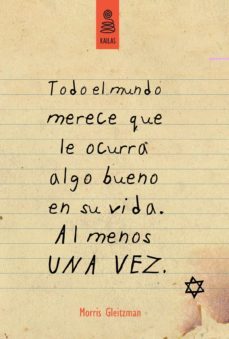 KAILAS
Todo el mundo
merece que
le ocurra
algo bueno
en su vida.
Al menos
UNA VEZ.
Morris Gleitzman